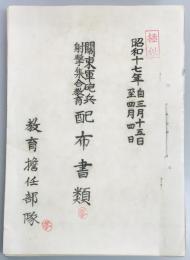 極秘
昭和十七年 自三月十五日
至四月四日
關東軍砲兵
射擊集合教育 配布書類
教育擔任部隊